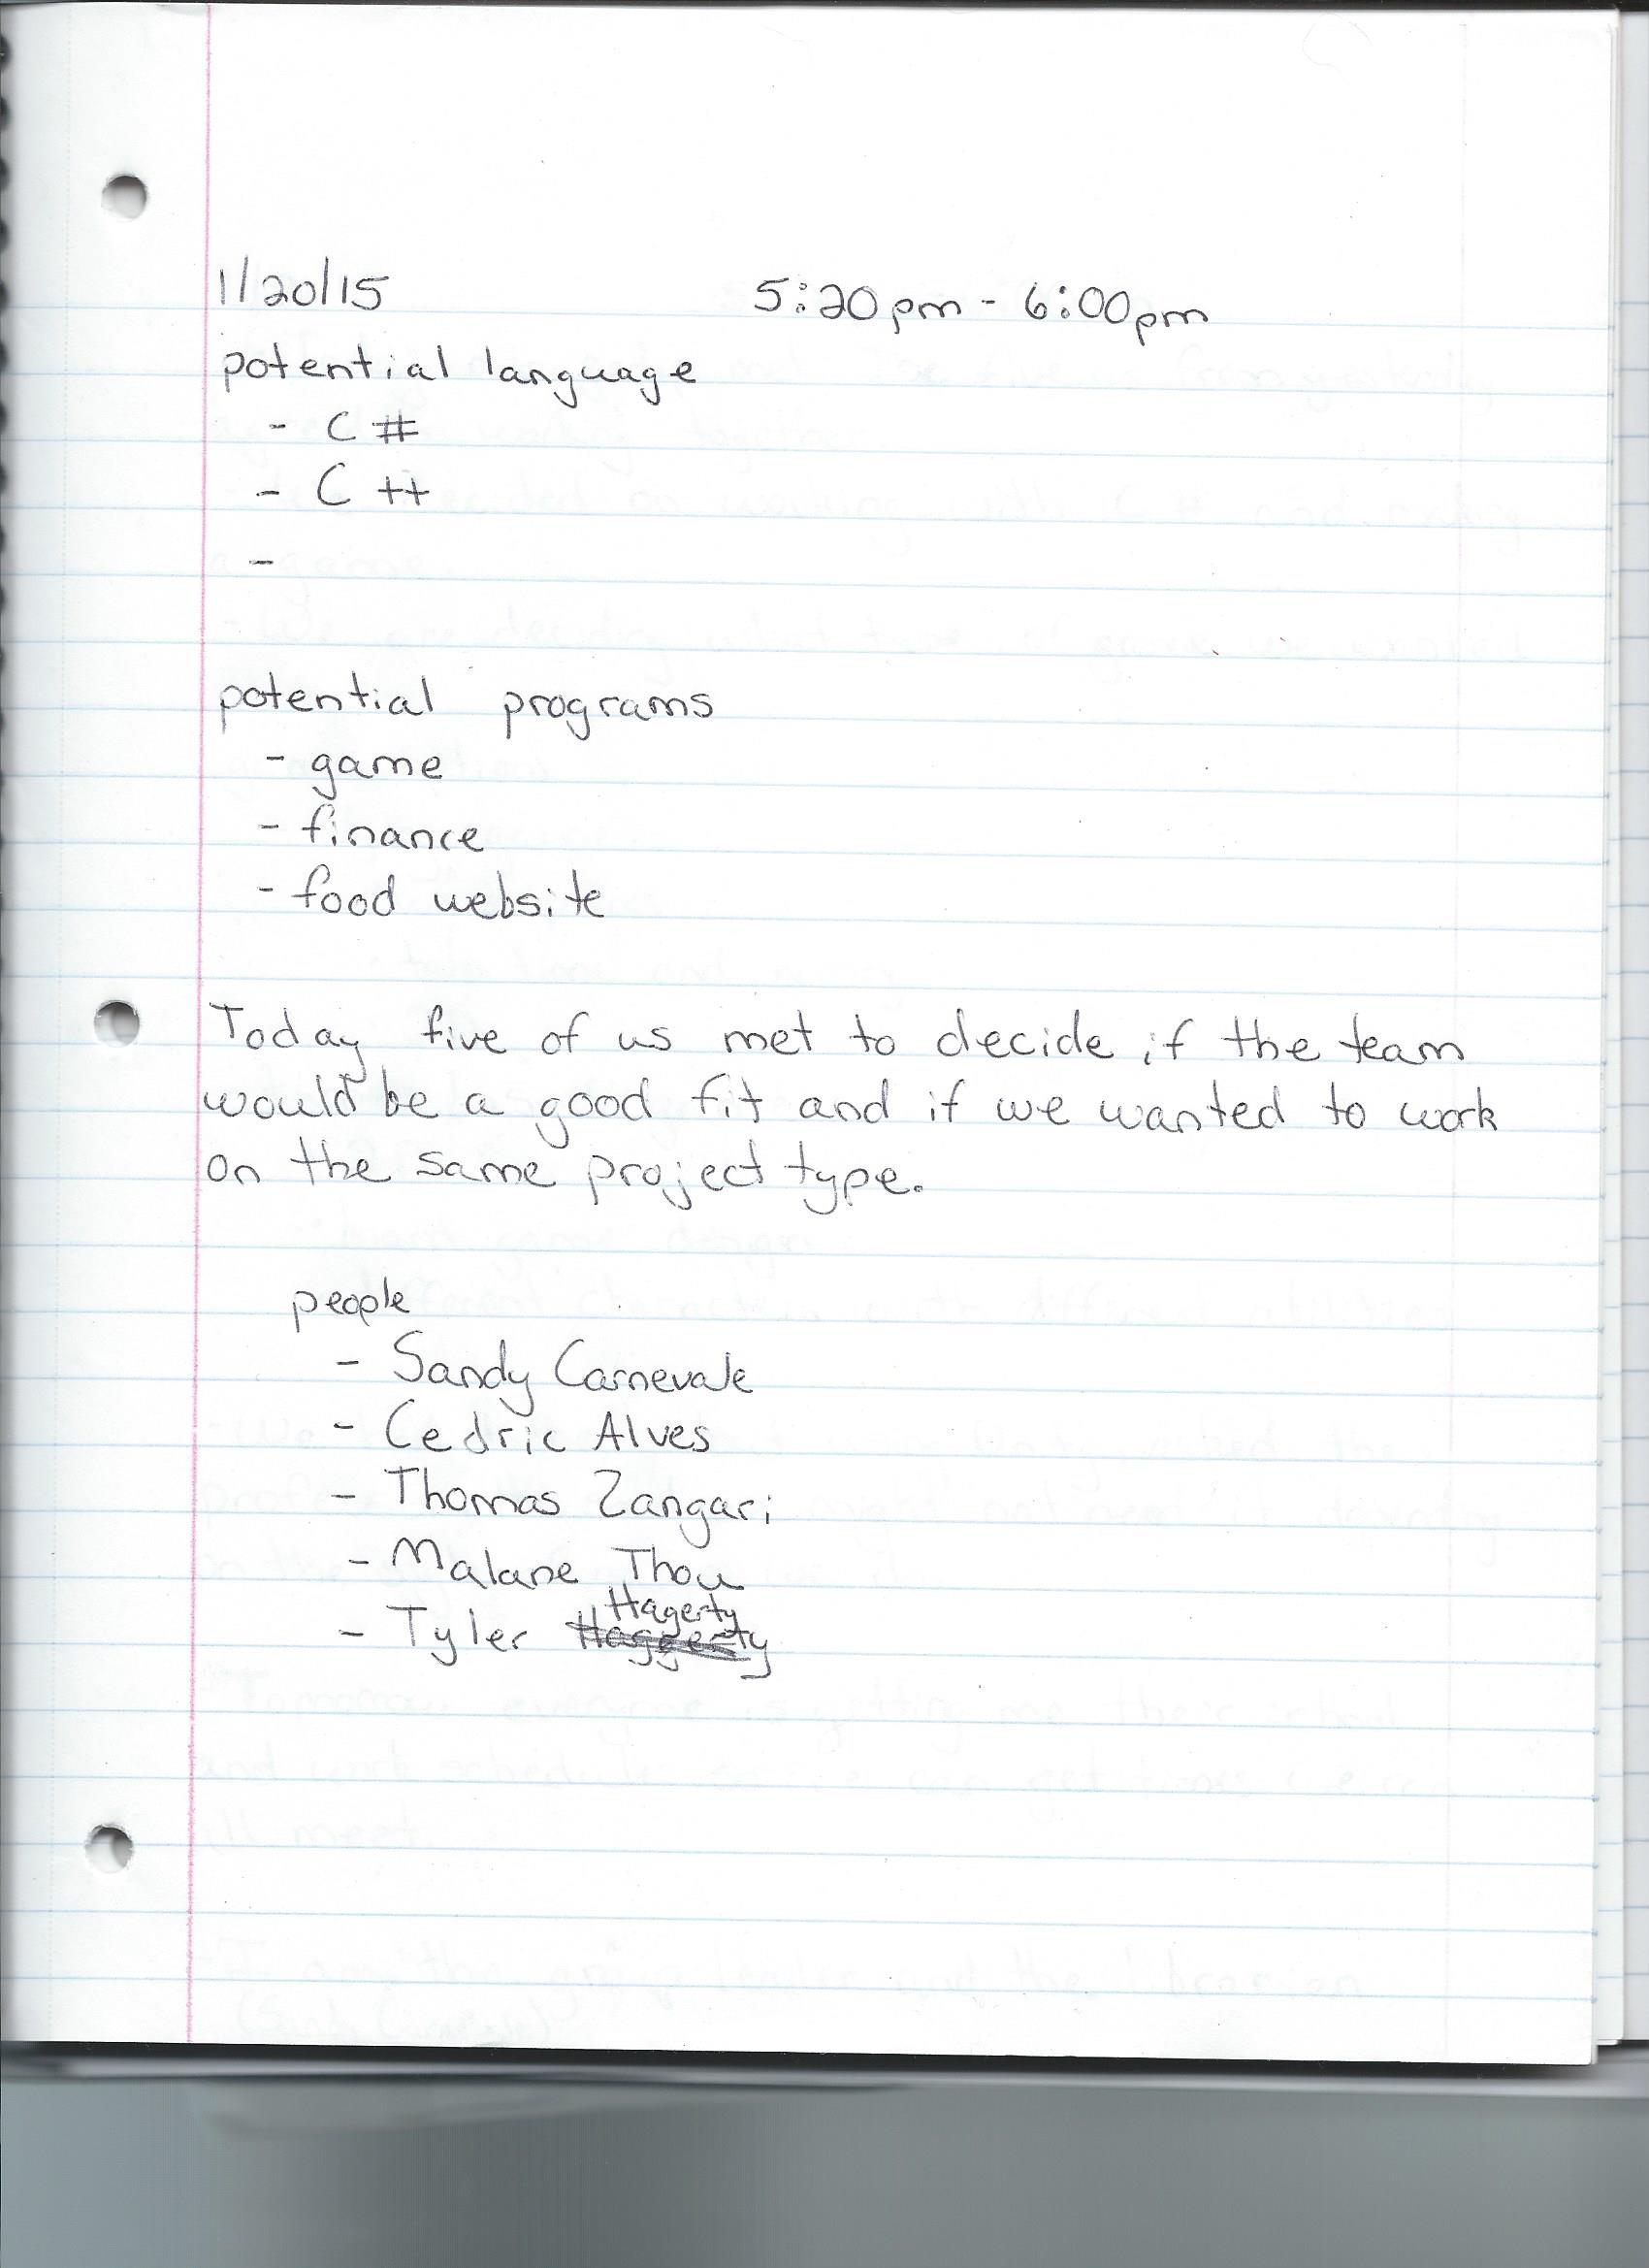 1/20/15 5:20pm - 6:00pm
potential language
- C#
- C++
-
potential programs
- game
- finance
- food website
Today five of us met to decide if the team
would be a good fit and if we wanted to work
on the same project type.
people
- Sandy Carnevale
- Cedric Alves
- Thomas Zangari
- Malane Thou
- Tyler Haggerty Hagerty